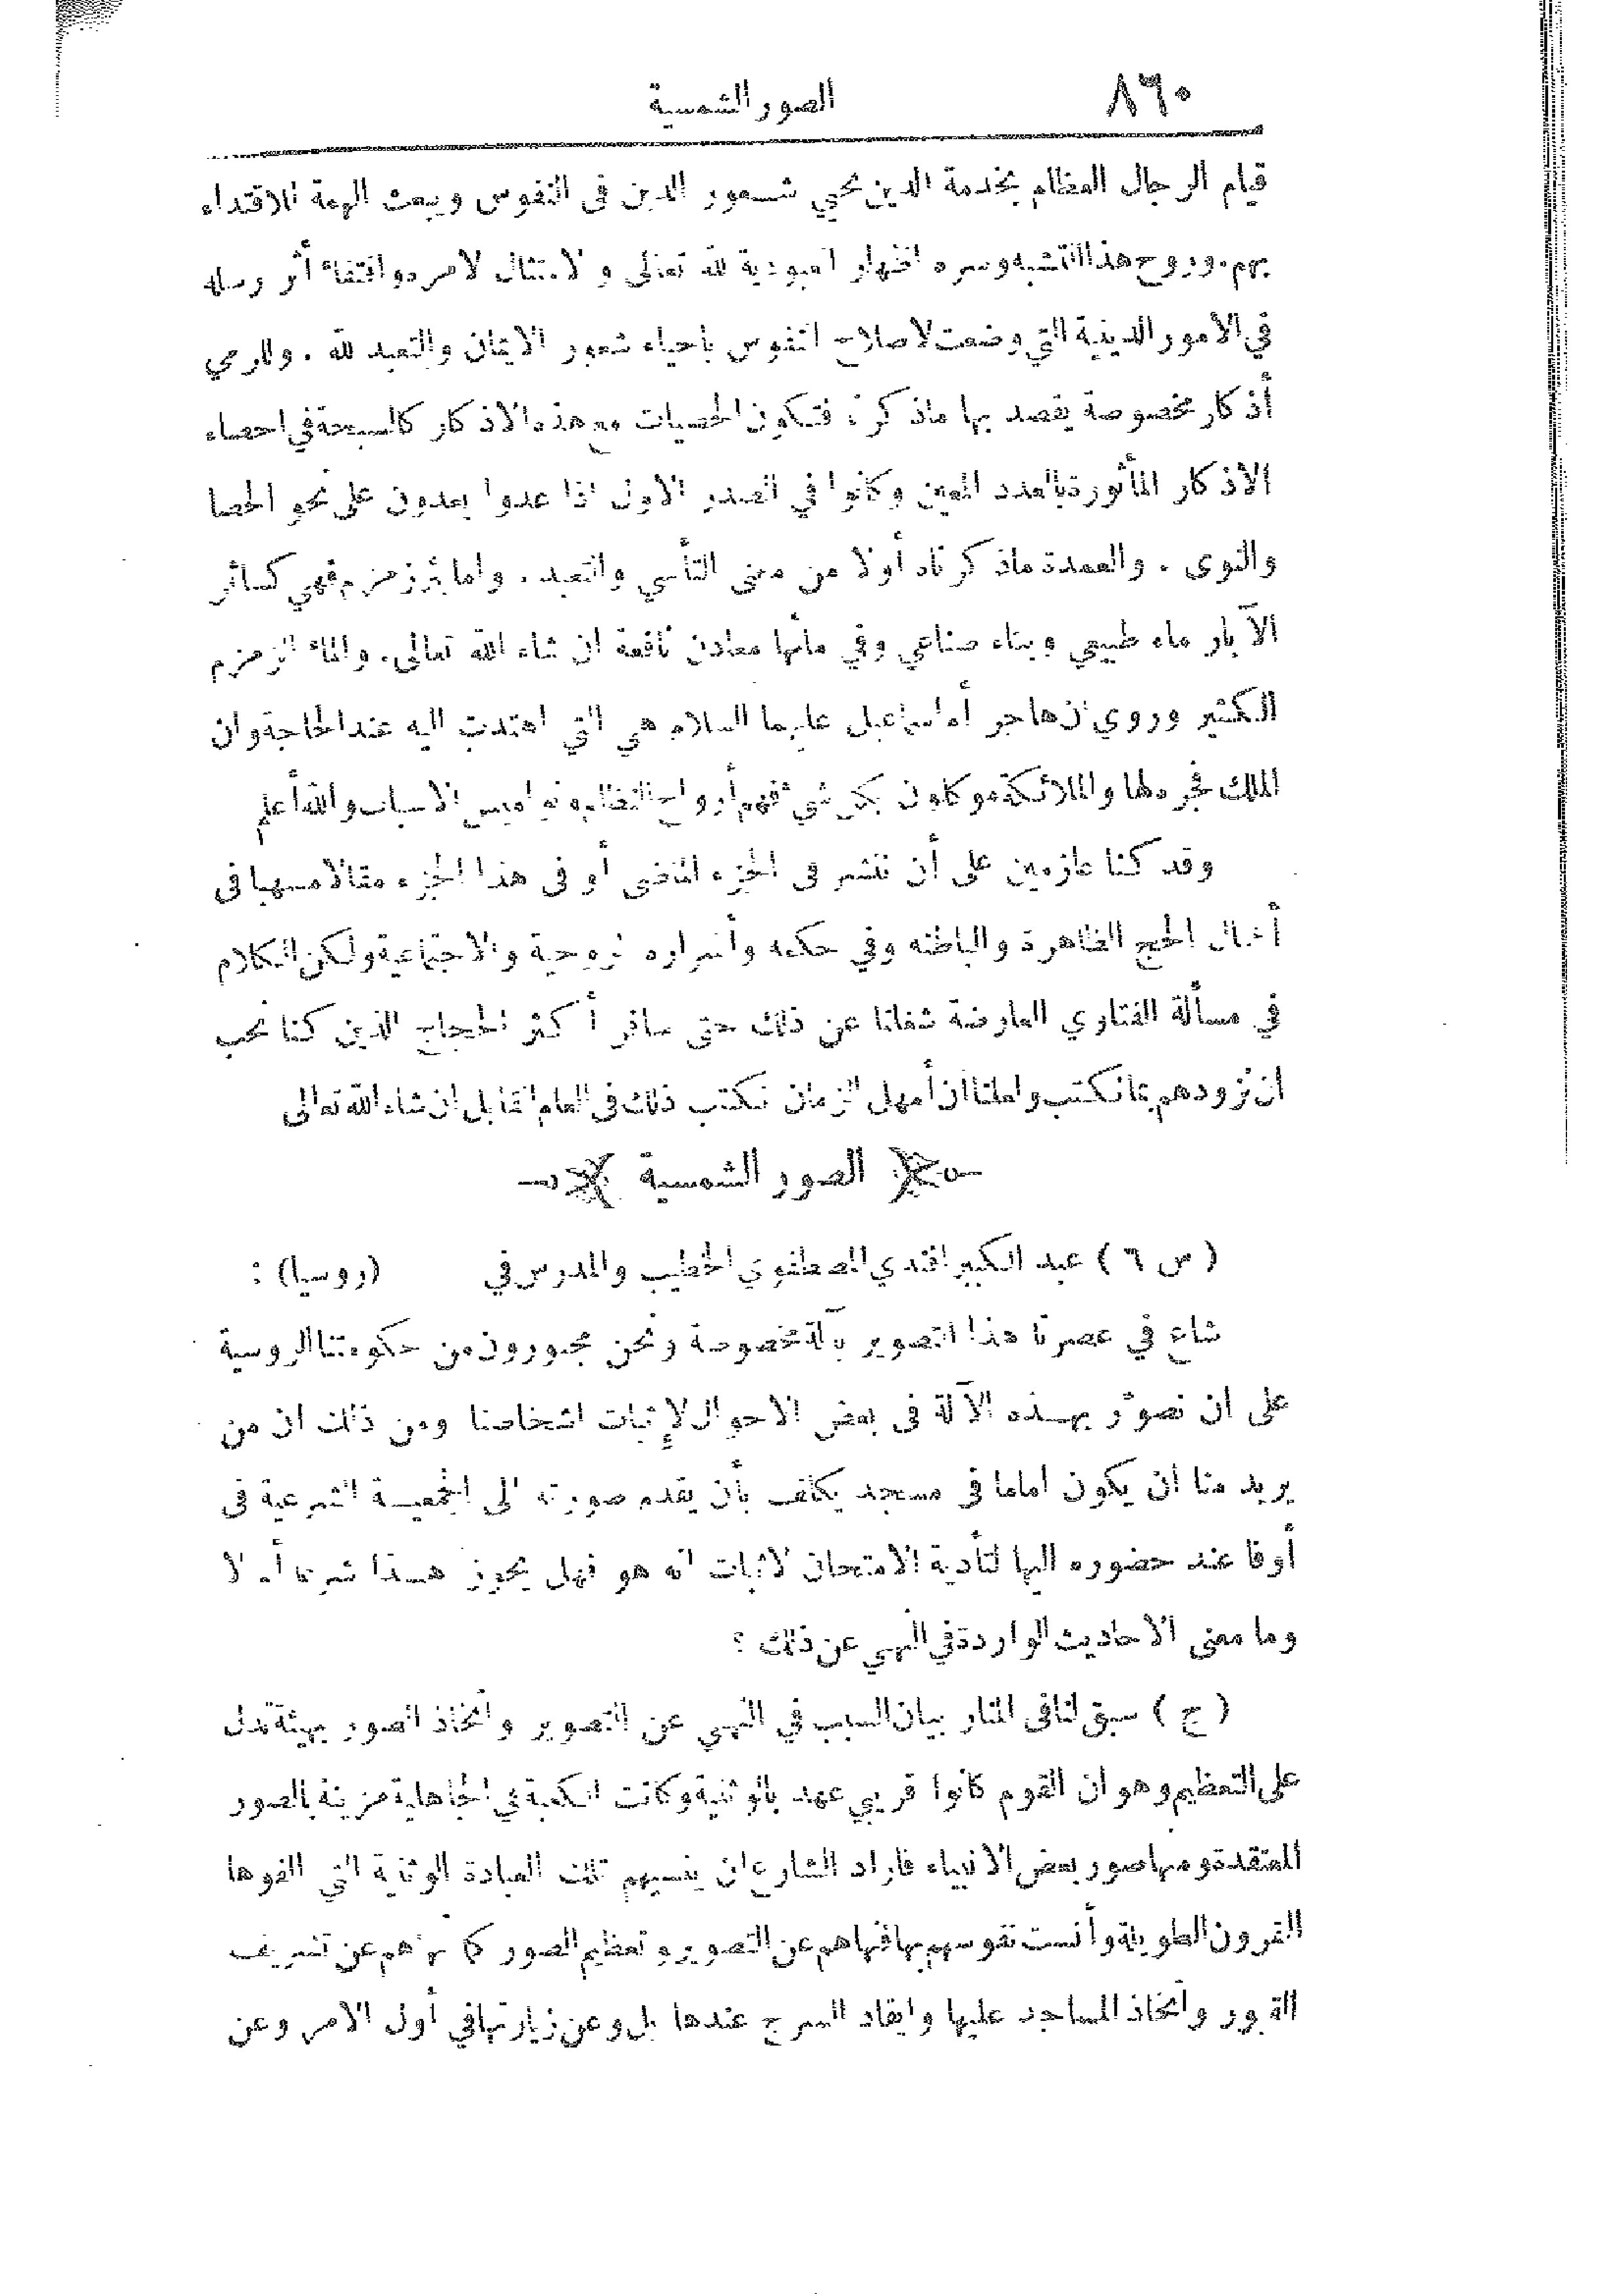 ٨٦٠
الصور الشمسية
قيام الرجال العظام بخدمة الدين يحيي شعور الدين فى النفوس ويبعث الهمة للاقتداء
بهم. وروح هذا التشبه وسره اظهار العبودية لله تعالى والامتثال لامره واقتفاء أثر رسله
في الامور الدينية التي وضعت لاصلاح النفوس باحياء شعور الايمان والتعبد لله . وللرمي
أذكار مخصوصة يقصد بها ماذكر ؛ فتكون الحصيات مع هذه الاذكار كالسبحة في احصاء
الاذكار المأثورة بالعدد المعين وكانوا في الصدر الاول اذا عدوا يعدون على نحو الحصا
والنوى . والعمدة ماذكرناه أولا من معنى التأسي والتعبد . واما بئر زمزم فهي كسائر
الآبار ماء طبيعي وبناء صناعي وفي مائها معادن نافعة ان شاء الله تعالى. والماء الزمزم
الكثير وروي ان هاجر أم اسماعيل عليهما السلام هي التي اهتدت اليه عند الحاجة وان
الملك فجره لها والملائكة موكلون بكل شيء فهم أرواح النظام ونواميس الاسباب والله أعلم
وقد كنا عازمين على أن ننشر فى الجزء الماضي أو فى هذا الجزء مقالا مسهبا فى
أعمال الحج الظاهرة والباطنه وفي حكمه وأسراره الروحية والاجتماعية ولكن الكلام
في مسألة الفتاوي العارضة شغلنا عن ذلك حتى سافر أكثر الحجاج الذين كنا نحب
ان نزودهم بما نكتب ولعلنا ان أمهل الزمان نكتب ذلك فى العام القابل ان شاء الله تعالى
الصور الشمسية
( س ٦ ) عبد الكبير افندي المصطفوي الخطيب والمدرس في (روسيا) :
شاع في عصرنا هذا التصوير بآلة مخصوصة ونحن مجبورون من حكومتنا الروسية
على ان نصوّر بهذه الآلة فى بعض الاحوال لإثبات اشخاصنا ومن ذلك ان من
يريد منا ان يكون اماما فى مسجد يكلف بأن يقدم صورته الى الجمعية الشرعية فى
أوفا عند حضوره اليها لتأدية الامتحان لاثبات انه هو فهل يجوز هذا شرعا أم لا
وما معنى الاحاديث الواردة في النهي عن ذلك ؟
( ج ) سبق لنا فى المنار بيان السبب في النهي عن التصوير واتخاذ الصور بهيئة تدل
على التعظيم وهو ان القوم كانوا قريبي عهد بالوثنية وكانت الكعبة في الجاهلية مزينة بالصور
المعتقدة ومنها صور بعض الانبياء فاراد الشارع ان ينسيهم تلك العبادة الوثنية التي الفوها
القرون الطويلة وأنست نفوسهم بها فنهاهم عن التصوير وتعظيم الصور كما نهاهم عن تشريف
القبور واتخاذ المساجد عليها وايقاد السرج عندها بل وعن زيارتها في أول الامر وعن